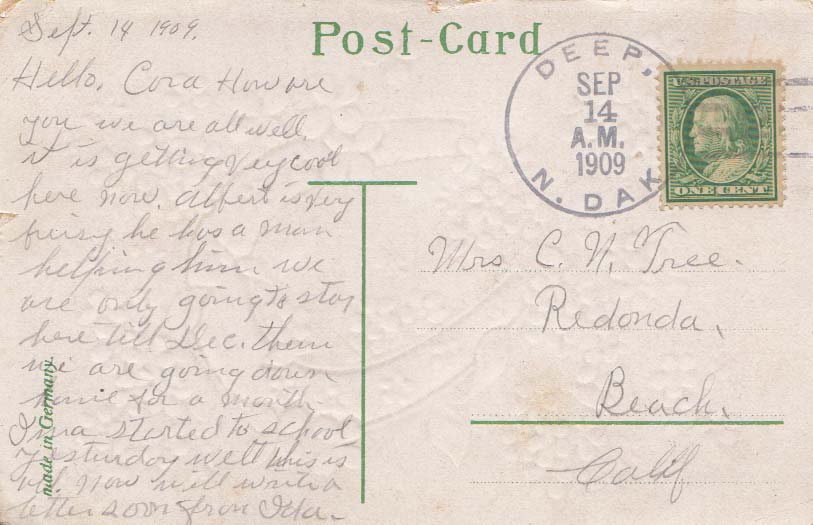 Sept. 14 1909.
Hello, Cora How are
you we are all well.
it is getting very cool
here now. Albert is very
he has a man
helping him we
are only going to stay
here till Dec. then
we are going down
home for a month
Irma started to school
yesturday well this is
all now will write a
letter soon from Ida.
made in Germany.
Post-Card
DEEP,
SEP
14
A.M.
1909
N. DAK
U.S. POSTAGE
ONE CENT
Mrs C. N. Tree.
Redonda,
Beach,
Calif